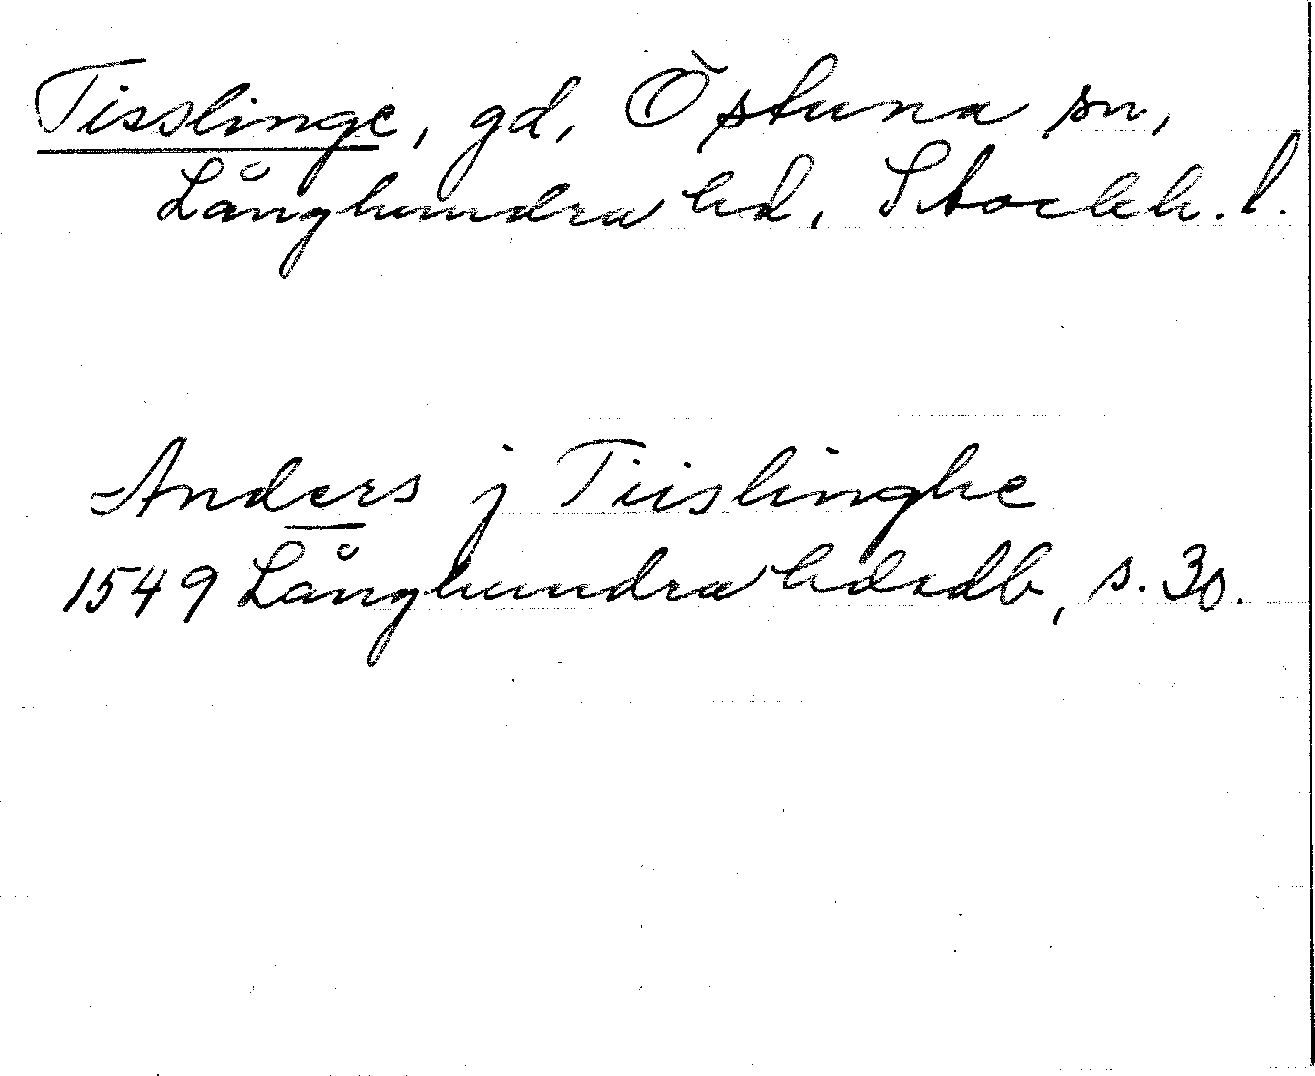 Tisslinge, gd, Östuna sn,
Långhundra hd, Stockh. l.
Anders j Tiislinghe
1549 Långhundra hdsdb, s. 30.